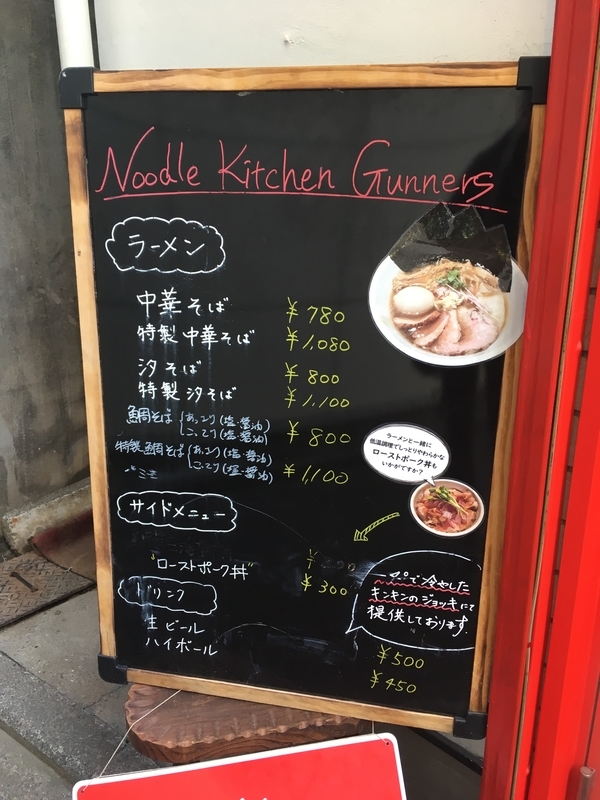 Noodle Kitchen Gunners
ラーメン
中華そば ¥780
特製中華そば ¥1,080
汐そば ¥800
特製汐そば ¥1,100
鯛そば あっさり(塩・醤油)
こってり(塩・醤油) ¥800
特製鯛そば あっさり(塩・醤油)
こってり(塩・醤油) ¥1,100
ラーメンと一緒に
低温調理でしっとりやわらかな
ローストポーク丼も
いかがですか?
サイドメニュー
ローストポーク丼 ¥300
ドリンク
で冷やした
キンキンのジョッキにて
提供しております。
生ビール ¥500
ハイボール ¥450